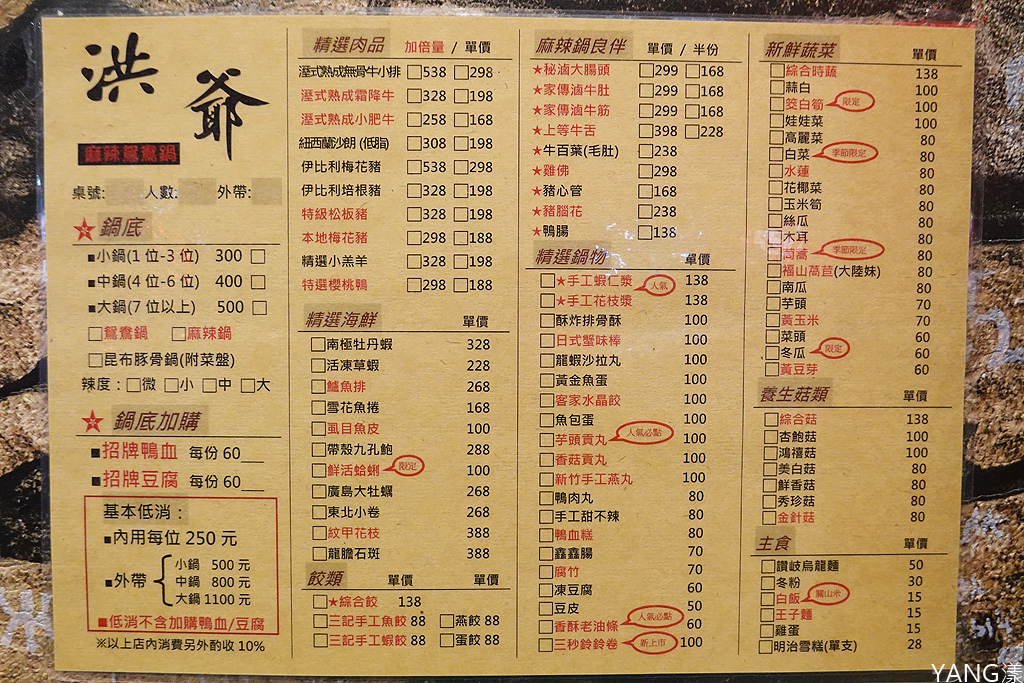 洪爺
麻辣鴛鴦鍋
桌號: 人數: 外帶:
鍋底
■小鍋(1位-3位) 300 □
■中鍋(4位-6位) 400 □
■大鍋(7位以上) 500 □
□鴛鴦鍋 □麻辣鍋
□昆布豚骨鍋(附菜盤)
辣度：□微 □小 □中 □大
鍋底加購
■招牌鴨血 每份60__
■招牌豆腐 每份60__
基本低消：
■內用每位 250 元
■外帶
小鍋 500 元
中鍋 800 元
大鍋 1100 元
■低消不含加購鴨血/豆腐
※以上店內消費另外酌收 10%
精選肉品 加倍量 / 單價
溼式熟成無骨牛小排 □538 □298
溼式熟成霜降牛 □328 □198
溼式熟成小肥牛 □258 □168
紐西蘭沙朗 (低脂) □308 □198
伊比利梅花豬 □538 □298
伊比利培根豬 □328 □198
特級松板豬 □328 □198
本地梅花豬 □298 □188
精選小羔羊 □328 □198
特選櫻桃鴨 □298 □188
精選海鮮 單價
□南極牡丹蝦 328
□活凍草蝦 228
□鱸魚排 268
□雪花魚捲 168
□虱目魚皮 100
□帶殼九孔鮑 288
□鮮活蛤蜊 限定 100
□廣島大牡蠣 268
□東北小卷 268
□紋甲花枝 388
□龍膽石斑 388
餃類 單價 單價
□★綜合餃 138
□三記手工魚餃 88 □燕餃 88
□三記手工蝦餃 88 □蛋餃 88
麻辣鍋良伴 單價 / 半份
★秘滷大腸頭 □299 □168
★家傳滷牛肚 □299 □168
★家傳滷牛筋 □299 □168
★上等牛舌 □398 □228
★牛百葉(毛肚) □238
★雞佛 □298
★豬心管 □168
★豬腦花 □238
★鴨腸 □138
精選鍋物 單價
□★手工蝦仁漿 人氣 138
□★手工花枝漿 138
□酥炸排骨酥 100
□日式蟹味棒 100
□龍蝦沙拉丸 100
□黃金魚蛋 100
□客家水晶餃 100
□魚包蛋 100
□芋頭貢丸 人氣必點 100
□香菇貢丸 100
□新竹手工燕丸 100
□鴨肉丸 80
□手工甜不辣 80
□鴨血糕 80
□鑫鑫腸 70
□腐竹 70
□凍豆腐 60
□豆皮 50
□香酥老油條 人氣必點 60
□三秒鈴鈴卷 新上市 100
新鮮蔬菜 單價
□綜合時蔬 138
□蒜白 100
□筊白筍 限定 100
□娃娃菜 100
□高麗菜 80
□白菜 季節限定 80
□水蓮 80
□花椰菜 80
□玉米筍 80
□絲瓜 80
□木耳 80
□茼蒿 季節限定 80
□福山萵苣(大陸妹) 80
□南瓜 80
□芋頭 70
□黃玉米 70
□菜頭 60
□冬瓜 限定 60
□黃豆芽 60
養生菇類 單價
□綜合菇 138
□杏鮑菇 100
□鴻禧菇 100
□美白菇 80
□鮮香菇 80
□秀珍菇 80
□金針菇 80
主食 單價
□讚岐烏龍麵 50
□冬粉 30
□白飯 關山米 15
□王子麵 15
□雞蛋 15
□明治雪糕(單支) 28
YANG漾